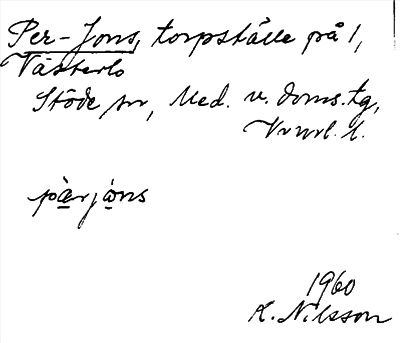 Per-Jons, torpställe på 1,
Västerlo
Stöde sn, Med. v. doms.tg,
Vrnrl. l.
pàrjòns
1960
K. Nilsson